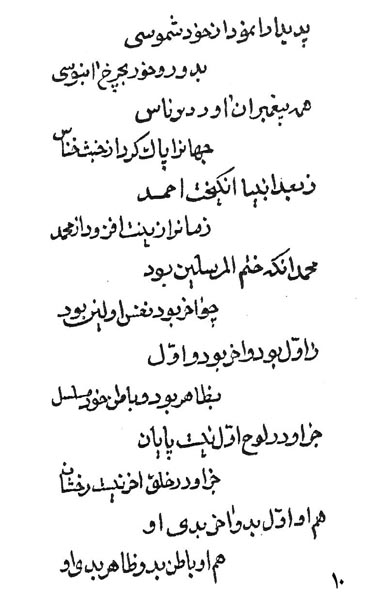 پدیدار نمود از خود شموسی
بدور و خور بچرخ آبنوسی
همه پیغمبران آورد بر ناس
جهانرا پاک کرد از خبث خناس
ز بعد انبیا انگیخت احمد
زمانرا زینت افزود از محمد
محمد آنکه ختم المرسلین بود
چو آخر بود نقش اولین بود
ز اوّل بود و آخر بود و اوّل
بظاهر بود و باطن خود مسلسل
جز او در لوح اوّل نیست پایان
جز او در خلق آخر نیست رخشان
هم او اوّل بد و آخر بدی او
هم او باطن بد و ظاهر بدی او
۱۰